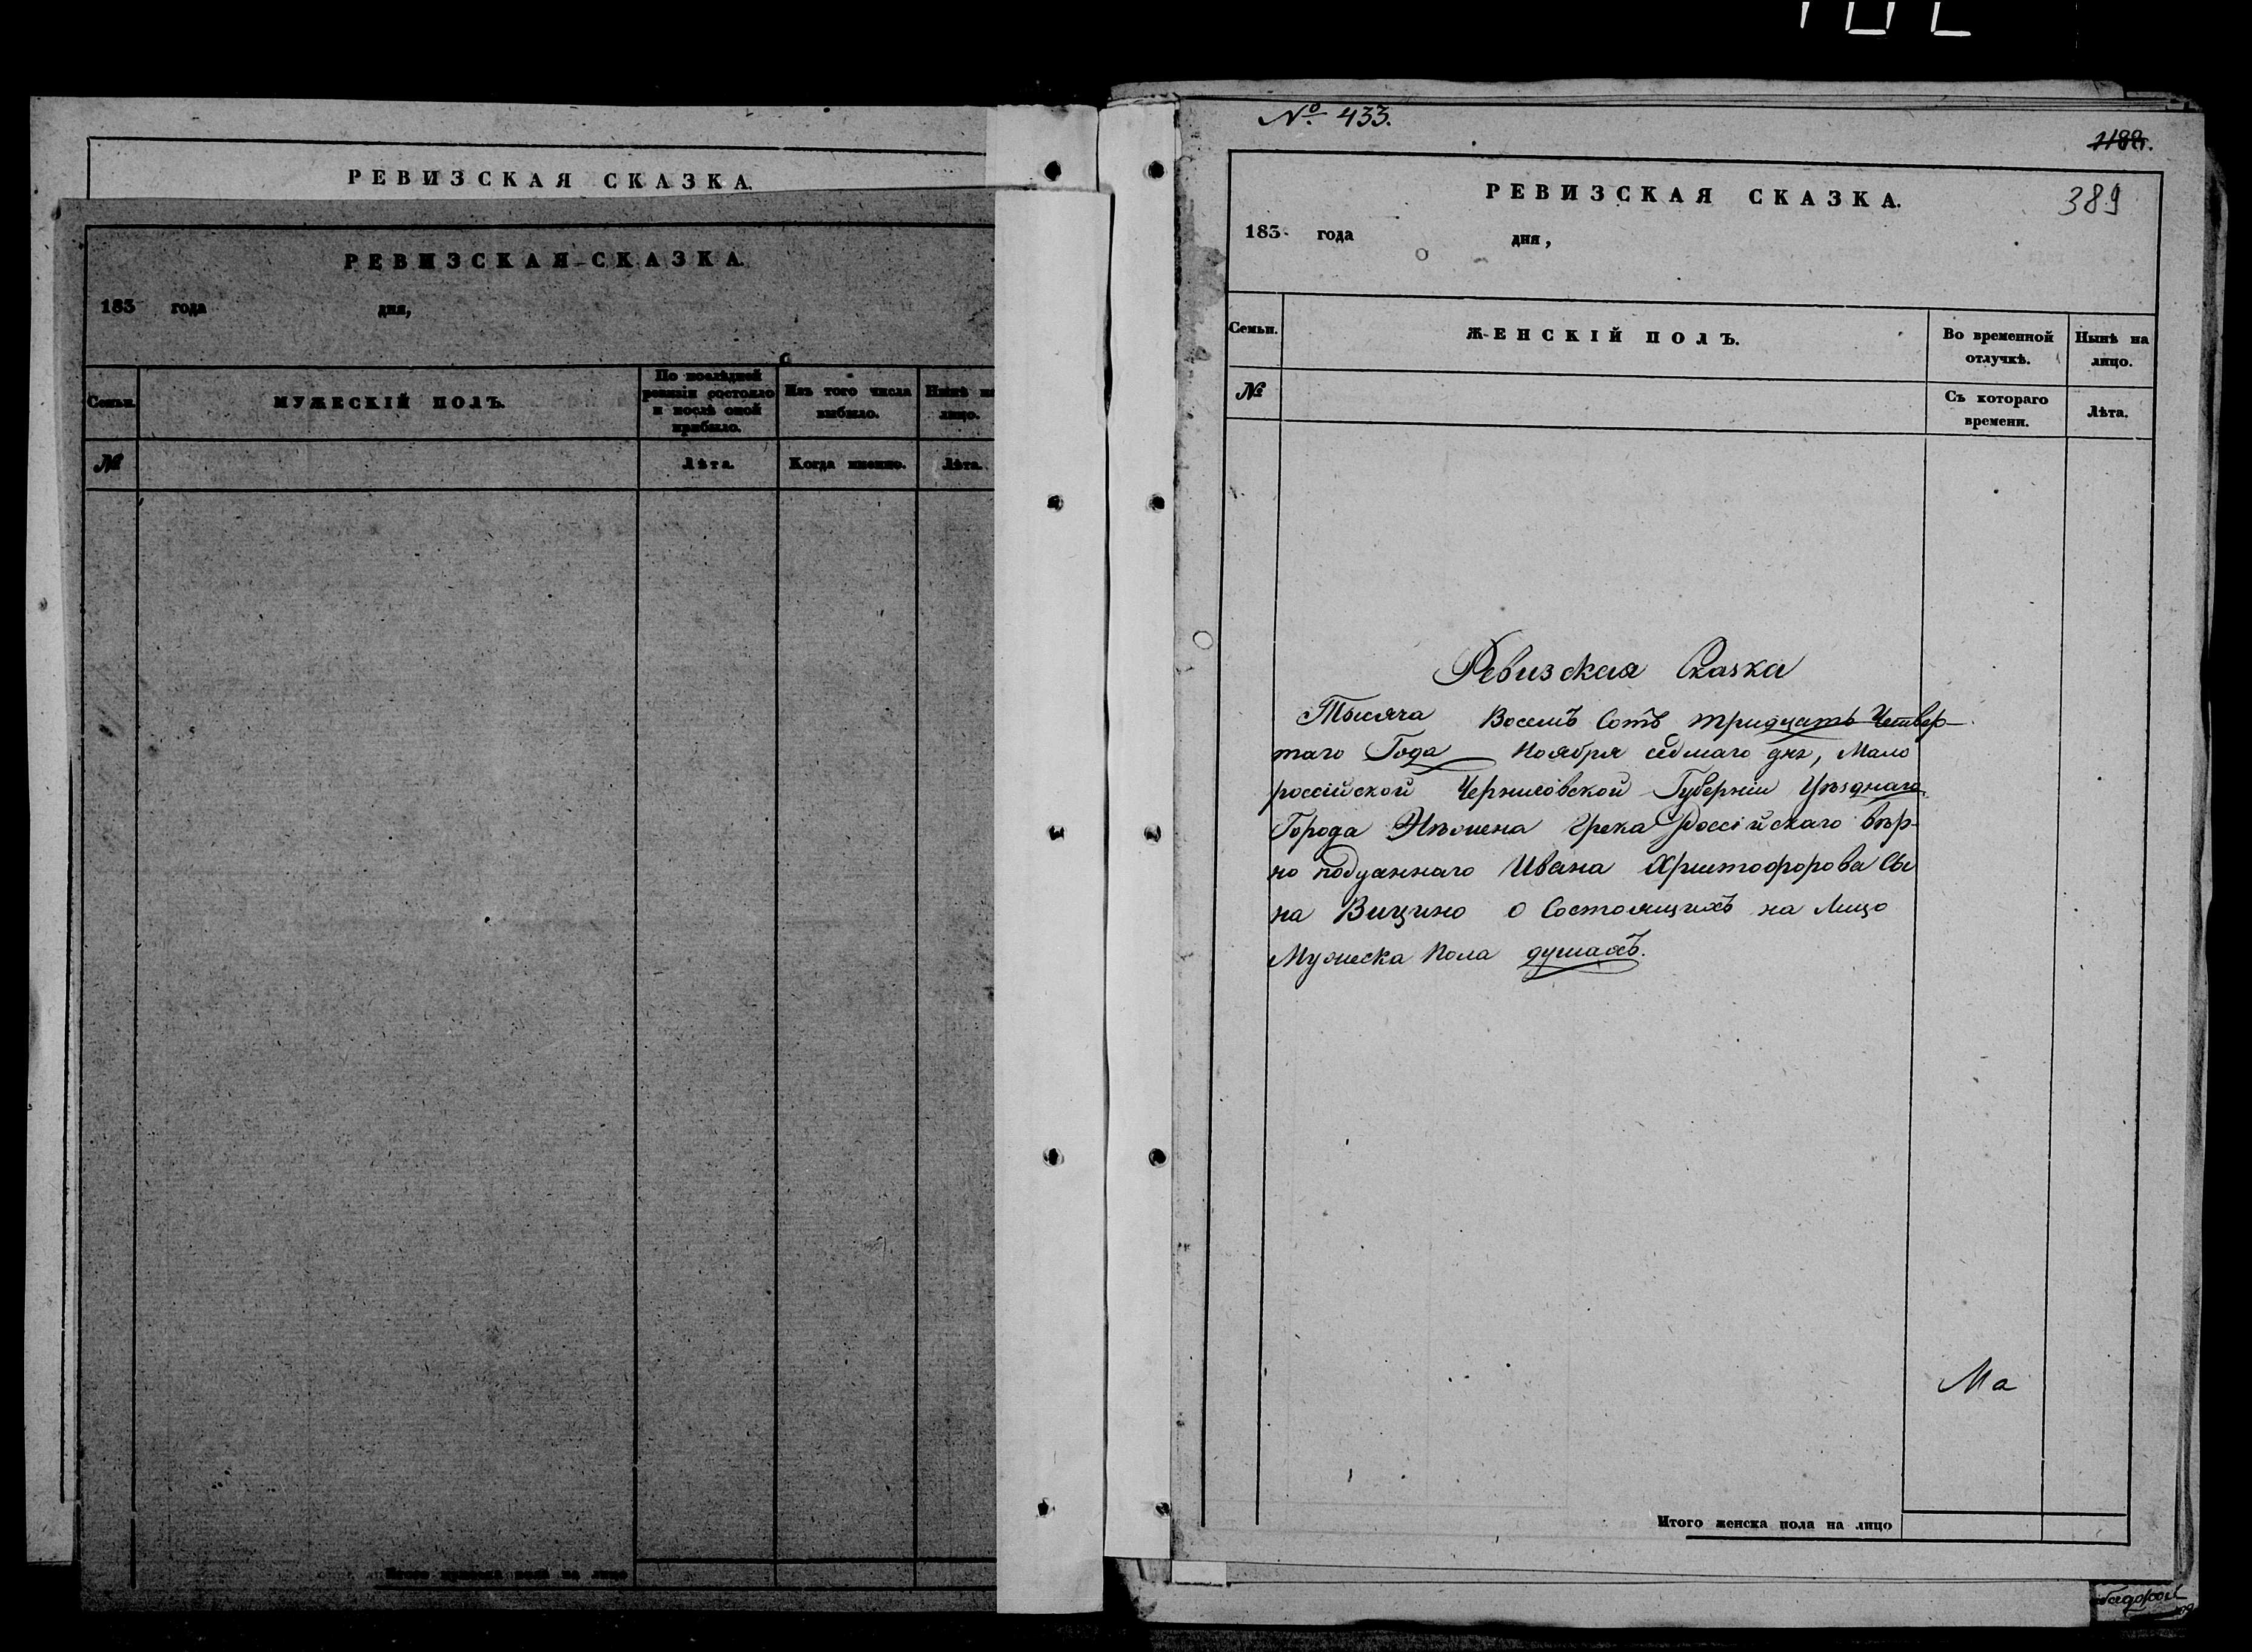 РЕВИЗСКАЯ СКАЗКА.
РЕВИЗСКАЯ СКАЗКА.
183 года дня,
Семьи. МУЖЕСКІЙ ПОЛЪ. По послѣдней ревизіи состояло и послѣ оной прибыло. Изъ того числа выбыло. Нынѣ на лицо.
№ Лѣта. Когда именно. Лѣта.
Итого мужеска пола на лицо
№ 433.
1188.
РЕВИЗСКАЯ СКАЗКА.
389
183 года дня,
Семьи. ЖЕНСКІЙ ПОЛЪ. Во временной отлучкѣ. Нынѣ на лицо.
№ Съ котораго времени. Лѣта.
Ревизская Сказка
Тысяча Восемъ Сотъ тридцать Четвер-
таго Года Ноября седмаго дня, Мало
россійской Черниговской Губерніи Уѣзднаго
Города Нѣжена Грека Россійскаго вѣр-
но подданнаго Ивана Христофорова Сы
на Вицино о Состоящихъ на Лицо
Мужеска Пола душахъ.
Ма
Итого женска пола на лицо